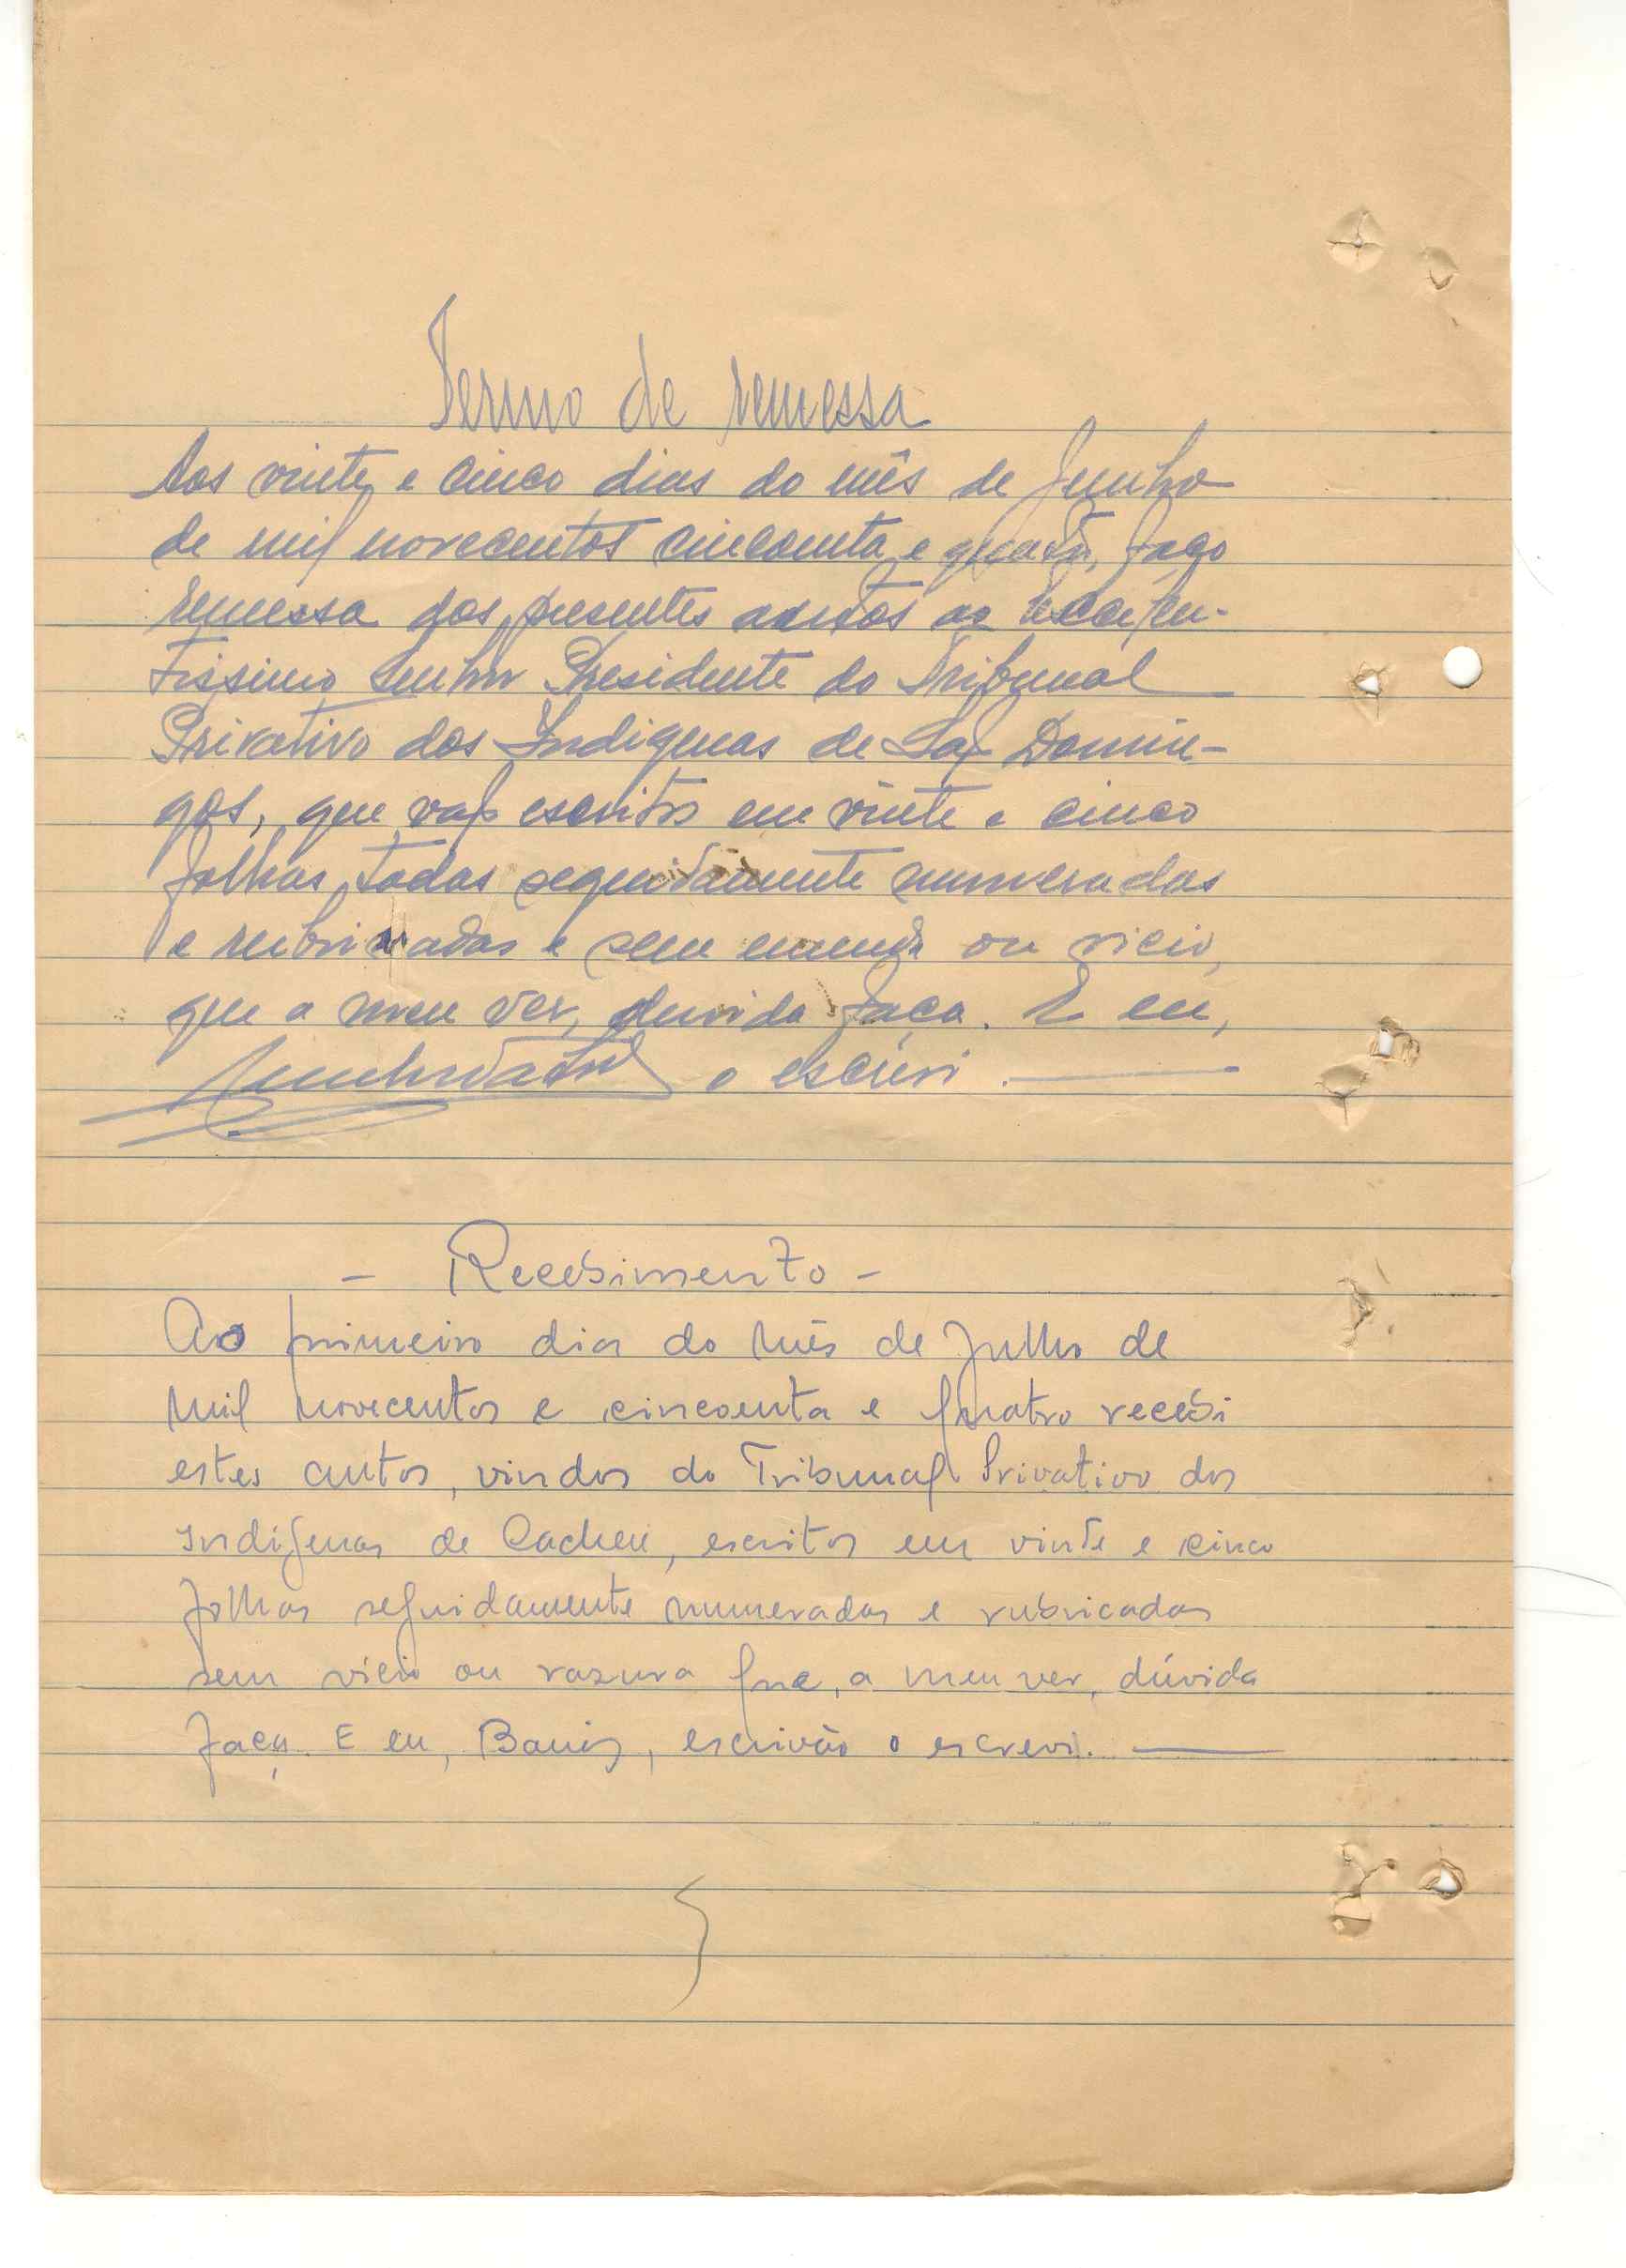 Termo de remessa
Aos vinte e cinco dias do mês de Junho
de mil novecentos cincoenta e quatro, faço
remessa dos presentes autos ao Excelen-
tissimo Senhor Presidente do Tribunal
Privativo dos Indigenas de São Domin-
gos, que vão escritos em vinte e cinco
folhas, todas seguidamente numeradas
e rubricadas e sem emenda ou vicio,
que a meu ver, duvida faça. E eu,
o escrevi.
- Recebimento -
Ao primeiro dia do mês de Julho de
mil novecentos e cincoenta e quatro recebi
estes autos, vindos do Tribunal Privativo dos
Indígenas de Cacheu, escritos em vinte e cinco
folhas seguidamente numeradas e rubricadas
sem vício ou razura que, a meu ver, dúvida
faça. E eu, escrivão o escrevi.